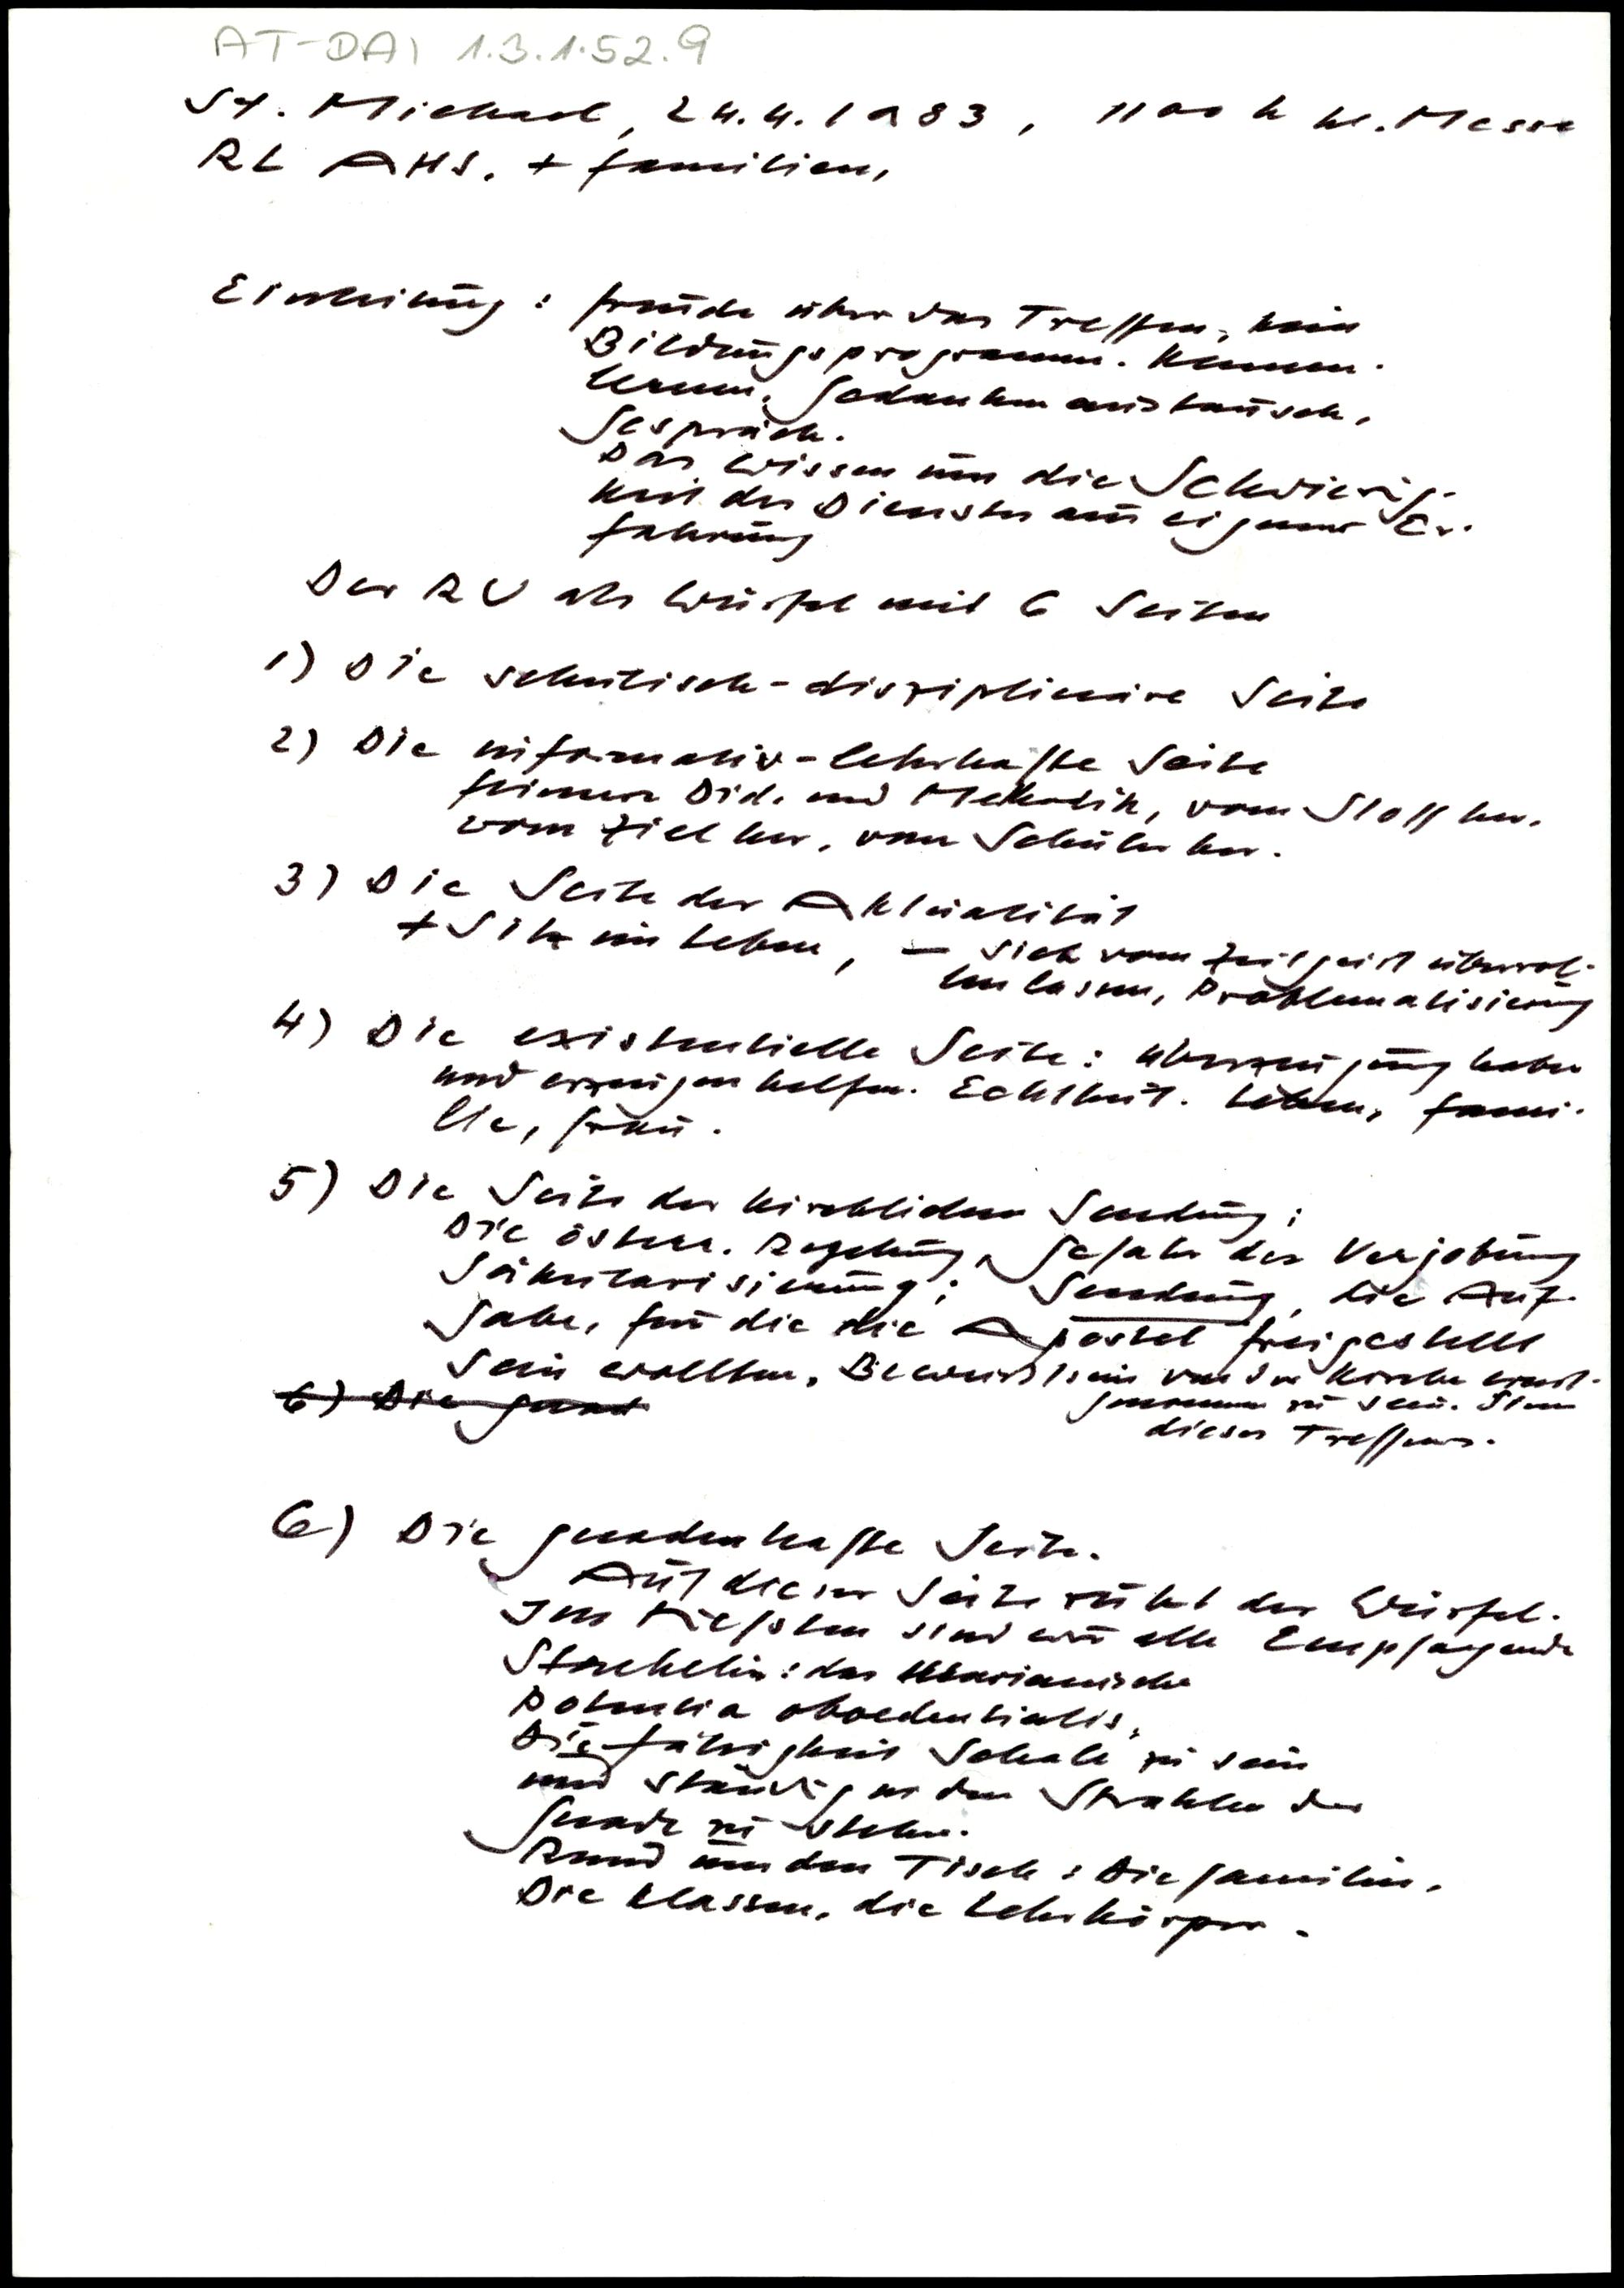 AT-DAI 1.3.1.52.9
St. Michael, 24.4.1983, 11 00 h hl. Messe
RL AHS. + Familien,
Einleitung: Freude über das Treffen, kein
Bildungsprogramm. Kennen-
lernen, Gedankenaustausch,
Gespräch.
Das Wissen um die Schwierig-
keit des Dienstes aus eigener Er-
fahrung
Der RU als Würfel mit 6 Seiten
1) Die schulisch-disziplinäre Seite
2) Die informativ-lehrhafte Seite
Did. und Methodik, vom Stoff her,
vom Ziel her, vom Schüler her.
3) Die Seite der Aktualität
+ Sitz im Leben, - sich vom Zeitgeist überrol-
len lassen, Problematisierung
4) Die existentielle Seite: Überzeugung haben
und erzeugen helfen. Echtheit. Leben, Fami-
lie, Frau.
5) Die Seite der kirchlichen Sendung:
Die österr. Regelung, Gefahr der Verjobung
Säkularisierung; Sendung, die Auf-
gabe, für die die Apostel freigestellt
sein wollten, Bewußtsein von der Kirche ernst-
6) Die gnad
genommen zu sein. Sinn
dieses Treffens.
6) Die gnadenhafte Seite.
Auf dieser Seite ruht der Würfel.
Im Tiefsten sind wir alle Empfangende
das Marianische
Potentia oboedentialis,
Die Fähigkeit Schale zu sein
und ständig in den Strahlen der
Gnade zu stehen.
Rund um den Tisch: Die Familien,
Die Klassen, die Lehrkörper.